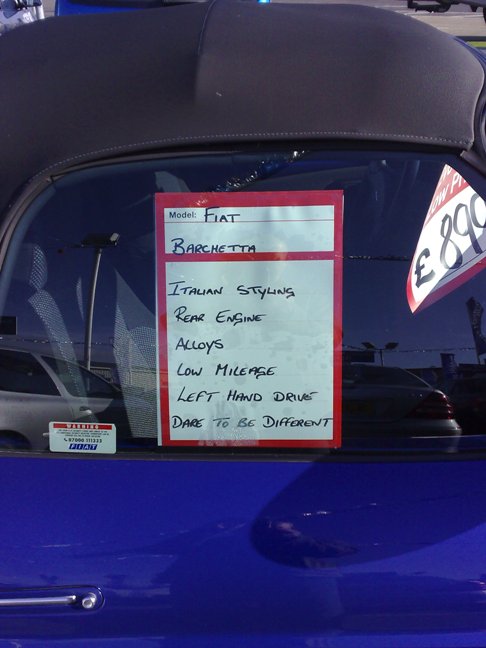 Model: FIAT
BARCHETTA
ITALIAN STYLING
REAR ENGINE
ALLOYS
LOW MILEAGE
LEFT HAND DRIVE
DARE TO BE DIFFERENT
£890
WARNING
07000 111333
FIAT